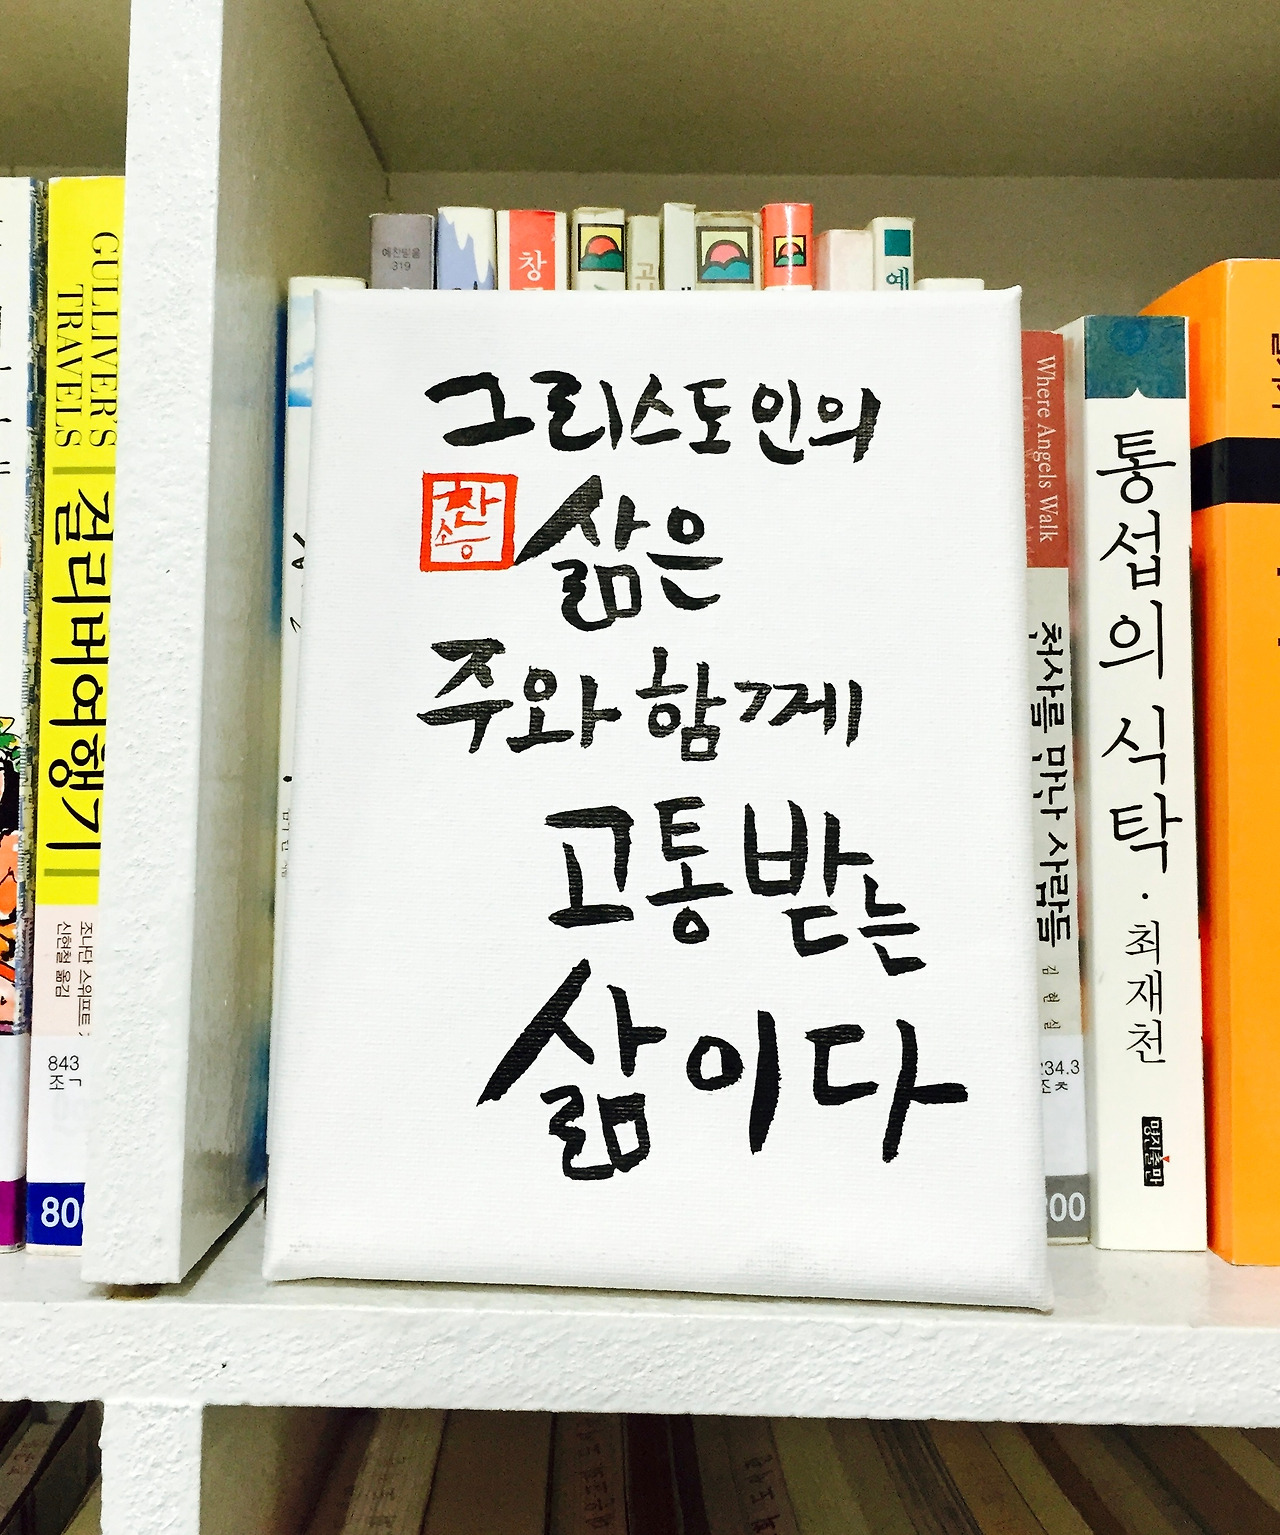 그리스도인의
삶은
주와 함께
고통받는
삶이다
찬
송
GULLIVER'S
TRAVELS
걸리버여행기
조나단 스위프트
신현철 옮김
843
조ㄱ
예찬믿음
319
창
예
Where Angels Walk
천사를 만난 사람들
234.3
200
통섭의 식탁 · 최재천
명진출판